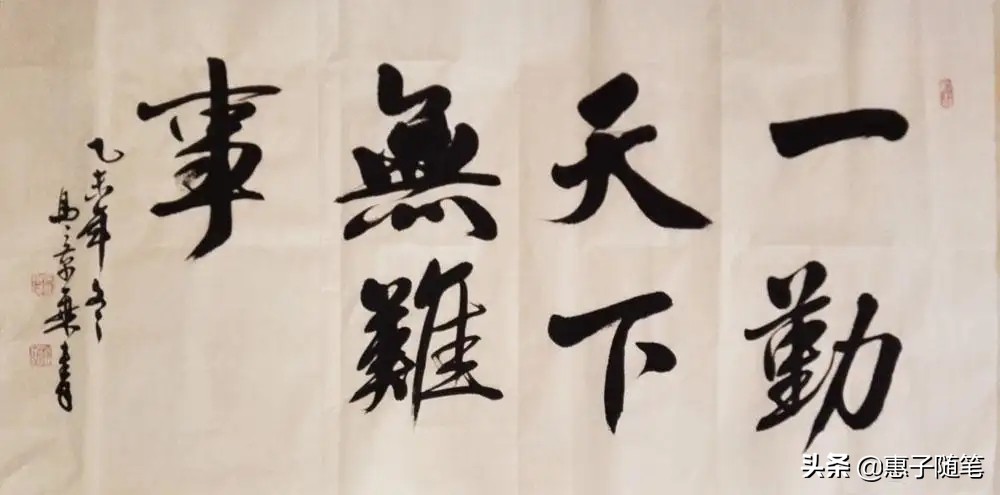 一勤
天下
無難
事
乙未年冬
頭条 @惠子随笔